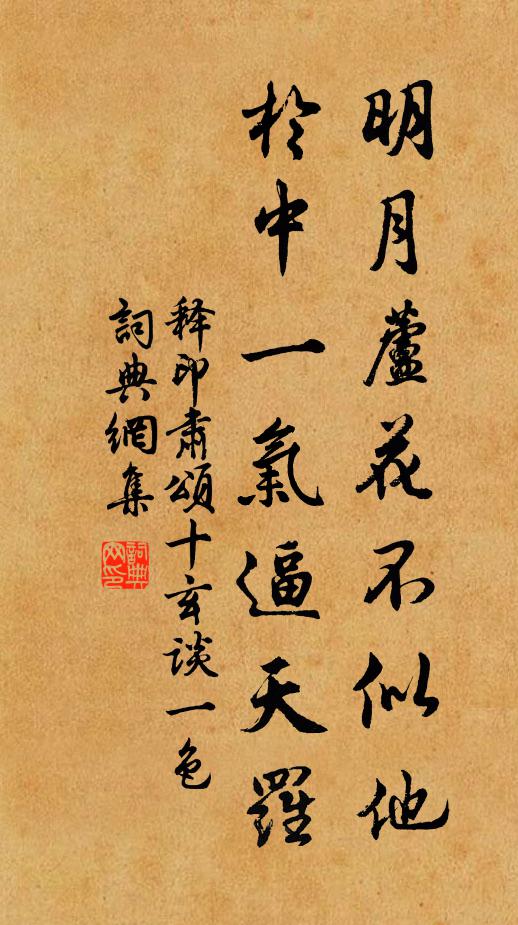 明月蘆花不似他
於中一氣逼天羅
释印肃頌十玄談一色
詞典網集
詞典
网印